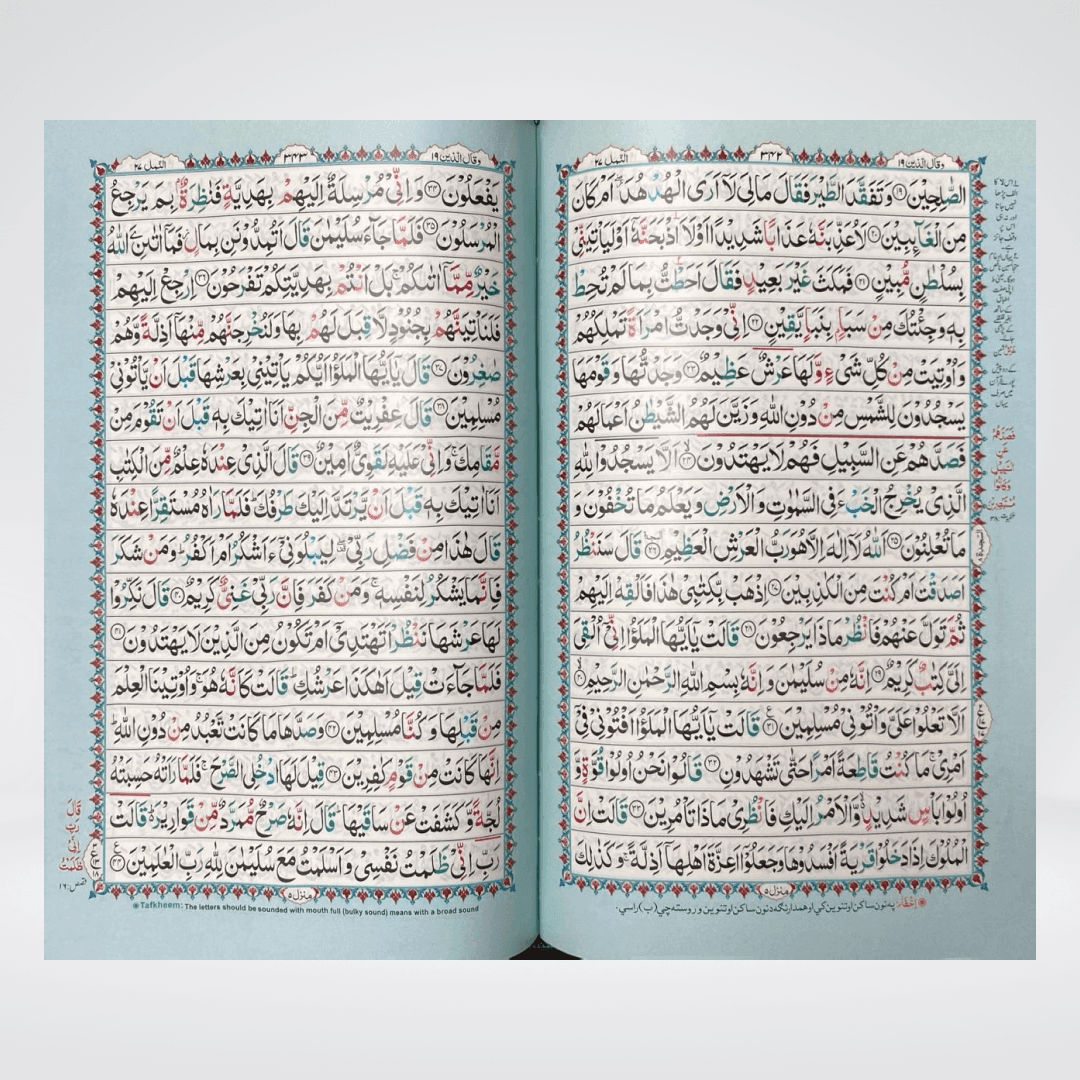 وقال الذين ١٩ ٣٤٢ النمل ٢٧
الصّٰلِحِيْنَ ﴿١٩﴾ وَتَفَقَّدَ الطَّيْرَ فَقَالَ مَالِيَ لَآ اَرَى الْهُدْهُدَ ۖ اَمْ كَانَ
مِنَ الْغَآئِبِيْنَ ﴿٢٠﴾ لَاُعَذِّبَنَّهٗ عَذَابًا شَدِيْدًا اَوْ لَا۟اَذْبَحَنَّهٗٓ اَوْ لَيَاْتِيَنِّيْ
بِسُلْطٰنٍ مُّبِيْنٍ ﴿٢١﴾ فَمَكَثَ غَيْرَ بَعِيْدٍ فَقَالَ اَحَطْتُّ بِمَا لَمْ تُحِطْ
بِهٖ وَجِئْتُكَ مِنْ سَبَاٍۭ بِنَبَاٍ يَّقِيْنٍ ﴿٢٢﴾ اِنِّيْ وَجَدْتُّ امْرَاَةً تَمْلِكُهُمْ
وَاُوْتِيَتْ مِنْ كُلِّ شَيْءٍ وَّلَهَا عَرْشٌ عَظِيْمٌ ﴿٢٣﴾ وَجَدْتُّهَا وَقَوْمَهَا
يَسْجُدُوْنَ لِلشَّمْسِ مِنْ دُوْنِ اللّٰهِ وَزَيَّنَ لَهُمُ الشَّيْطٰنُ اَعْمَالَهُمْ
فَصَدَّهُمْ عَنِ السَّبِيْلِ فَهُمْ لَا يَهْتَدُوْنَ ﴿٢٤﴾ اَلَّا يَسْجُدُوْا لِلّٰهِ
الَّذِيْ يُخْرِجُ الْخَبْءَ فِي السَّمٰوٰتِ وَالْاَرْضِ وَيَعْلَمُ مَا تُخْفُوْنَ وَ
مَا تُعْلِنُوْنَ ﴿٢٥﴾ اَللّٰهُ لَآ اِلٰهَ اِلَّا هُوَ رَبُّ الْعَرْشِ الْعَظِيْمِ ﴿٢٦﴾ قَالَ سَنَنْظُرُ
اَصَدَقْتَ اَمْ كُنْتَ مِنَ الْكٰذِبِيْنَ ﴿٢٧﴾ اِذْهَبْ بِّكِتٰبِيْ هٰذَا فَاَلْقِهْ اِلَيْهِمْ
ثُمَّ تَوَلَّ عَنْهُمْ فَانْظُرْ مَاذَا يَرْجِعُوْنَ ﴿٢٨﴾ قَالَتْ يٰٓاَيُّهَا الْمَلَؤُا اِنِّيْٓ اُلْقِيَ
اِلَيَّ كِتٰبٌ كَرِيْمٌ ﴿٢٩﴾ اِنَّهٗ مِنْ سُلَيْمٰنَ وَاِنَّهٗ بِسْمِ اللّٰهِ الرَّحْمٰنِ الرَّحِيْمِ ﴿٣٠﴾
اَلَّا تَعْلُوْا عَلَيَّ وَاْتُوْنِيْ مُسْلِمِيْنَ ﴿٣١﴾ قَالَتْ يٰٓاَيُّهَا الْمَلَؤُا اَفْتُوْنِيْ فِيْٓ
اَمْرِيْ ۚ مَا كُنْتُ قَاطِعَةً اَمْرًا حَتّٰى تَشْهَدُوْنِ ﴿٣٢﴾ قَالُوْا نَحْنُ اُولُوْا قُوَّةٍ وَّ
اُولُوْا بَاْسٍ شَدِيْدٍ ۙ وَّالْاَمْرُ اِلَيْكِ فَانْظُرِيْ مَاذَا تَاْمُرِيْنَ ﴿٣٣﴾ قَالَتْ اِنَّ
الْمُلُوْكَ اِذَا دَخَلُوْا قَرْيَةً اَفْسَدُوْهَا وَجَعَلُوْٓا اَعِزَّةَ اَهْلِهَآ اَذِلَّةً ۚ وَكَذٰلِكَ
منزل ٥
اِخْفَاء: په نون ساکن او تنوین کي او همدارنګه د نون ساکن او تنوین وروسته چي (ب) راسي.
فَصَدَّهُمْ
عَنِ
السَّبِيْلِ
وَكَانُوْا
مُسْتَبْصِرِيْنَ
وقال الذين ١٩ ٣٤٣ النمل ٢٧
يَفْعَلُوْنَ ﴿٣٤﴾ وَاِنِّيْ مُرْسِلَةٌ اِلَيْهِمْ بِهَدِيَّةٍ فَنٰظِرَةٌۢ بِمَ يَرْجِعُ
الْمُرْسَلُوْنَ ﴿٣٥﴾ فَلَمَّا جَآءَ سُلَيْمٰنَ قَالَ اَتُمِدُّوْنَنِ بِمَالٍ فَمَآ اٰتٰىنِۦَ اللّٰهُ
خَيْرٌ مِّمَّآ اٰتٰىكُمْ ۚ بَلْ اَنْتُمْ بِهَدِيَّتِكُمْ تَفْرَحُوْنَ ﴿٣٦﴾ اِرْجِعْ اِلَيْهِمْ
فَلَنَاْتِيَنَّهُمْ بِجُنُوْدٍ لَّا قِبَلَ لَهُمْ بِهَا وَلَنُخْرِجَنَّهُمْ مِّنْهَآ اَذِلَّةً وَّهُمْ
صٰغِرُوْنَ ﴿٣٧﴾ قَالَ يٰٓاَيُّهَا الْمَلَؤُا اَيُّكُمْ يَاْتِيْنِيْ بِعَرْشِهَا قَبْلَ اَنْ يَّاْتُوْنِيْ
مُسْلِمِيْنَ ﴿٣٨﴾ قَالَ عِفْرِيْتٌ مِّنَ الْجِنِّ اَنَا اٰتِيْكَ بِهٖ قَبْلَ اَنْ تَقُوْمَ مِنْ
مَّقَامِكَ ۚ وَاِنِّيْ عَلَيْهِ لَقَوِيٌّ اَمِيْنٌ ﴿٣٩﴾ قَالَ الَّذِيْ عِنْدَهٗ عِلْمٌ مِّنَ الْكِتٰبِ
اَنَا اٰتِيْكَ بِهٖ قَبْلَ اَنْ يَّرْتَدَّ اِلَيْكَ طَرْفُكَ ۗ فَلَمَّا رَاٰهُ مُسْتَقِرًّا عِنْدَهٗ
قَالَ هٰذَا مِنْ فَضْلِ رَبِّيْ ۖ لِيَبْلُوَنِيْٓ ءَاَشْكُرُ اَمْ اَكْفُرُ ۗ وَمَنْ شَكَرَ
فَاِنَّمَا يَشْكُرُ لِنَفْسِهٖ ۚ وَمَنْ كَفَرَ فَاِنَّ رَبِّيْ غَنِيٌّ كَرِيْمٌ ﴿٤٠﴾ قَالَ نَكِّرُوْا
لَهَا عَرْشَهَا نَنْظُرْ اَتَهْتَدِيْٓ اَمْ تَكُوْنُ مِنَ الَّذِيْنَ لَا يَهْتَدُوْنَ ﴿٤١﴾
فَلَمَّا جَآءَتْ قِيْلَ اَهٰكَذَا عَرْشُكِ ۗ قَالَتْ كَاَنَّهٗ هُوَ ۚ وَاُوْتِيْنَا الْعِلْمَ
مِنْ قَبْلِهَا وَكُنَّا مُسْلِمِيْنَ ﴿٤٢﴾ وَصَدَّهَا مَا كَانَتْ تَّعْبُدُ مِنْ دُوْنِ اللّٰهِ ۗ
اِنَّهَا كَانَتْ مِنْ قَوْمٍ كٰفِرِيْنَ ﴿٤٣﴾ قِيْلَ لَهَا ادْخُلِي الصَّرْحَ ۚ فَلَمَّا رَاَتْهُ حَسِبَتْهُ
لُجَّةً وَّكَشَفَتْ عَنْ سَاقَيْهَا ۗ قَالَ اِنَّهٗ صَرْحٌ مُّمَرَّدٌ مِّنْ قَوَارِيْرَ ۗ قَالَتْ
رَبِّ اِنِّيْ ظَلَمْتُ نَفْسِيْ وَاَسْلَمْتُ مَعَ سُلَيْمٰنَ لِلّٰهِ رَبِّ الْعٰلَمِيْنَ ﴿٤٤﴾
منزل ٥
Tafkheem: The letters should be sounded with mouth full (bulky sound) means with a broad sound
قَالَ
رَبِّ
اِنِّيْ
ظَلَمْتُ
قصص: ١٦